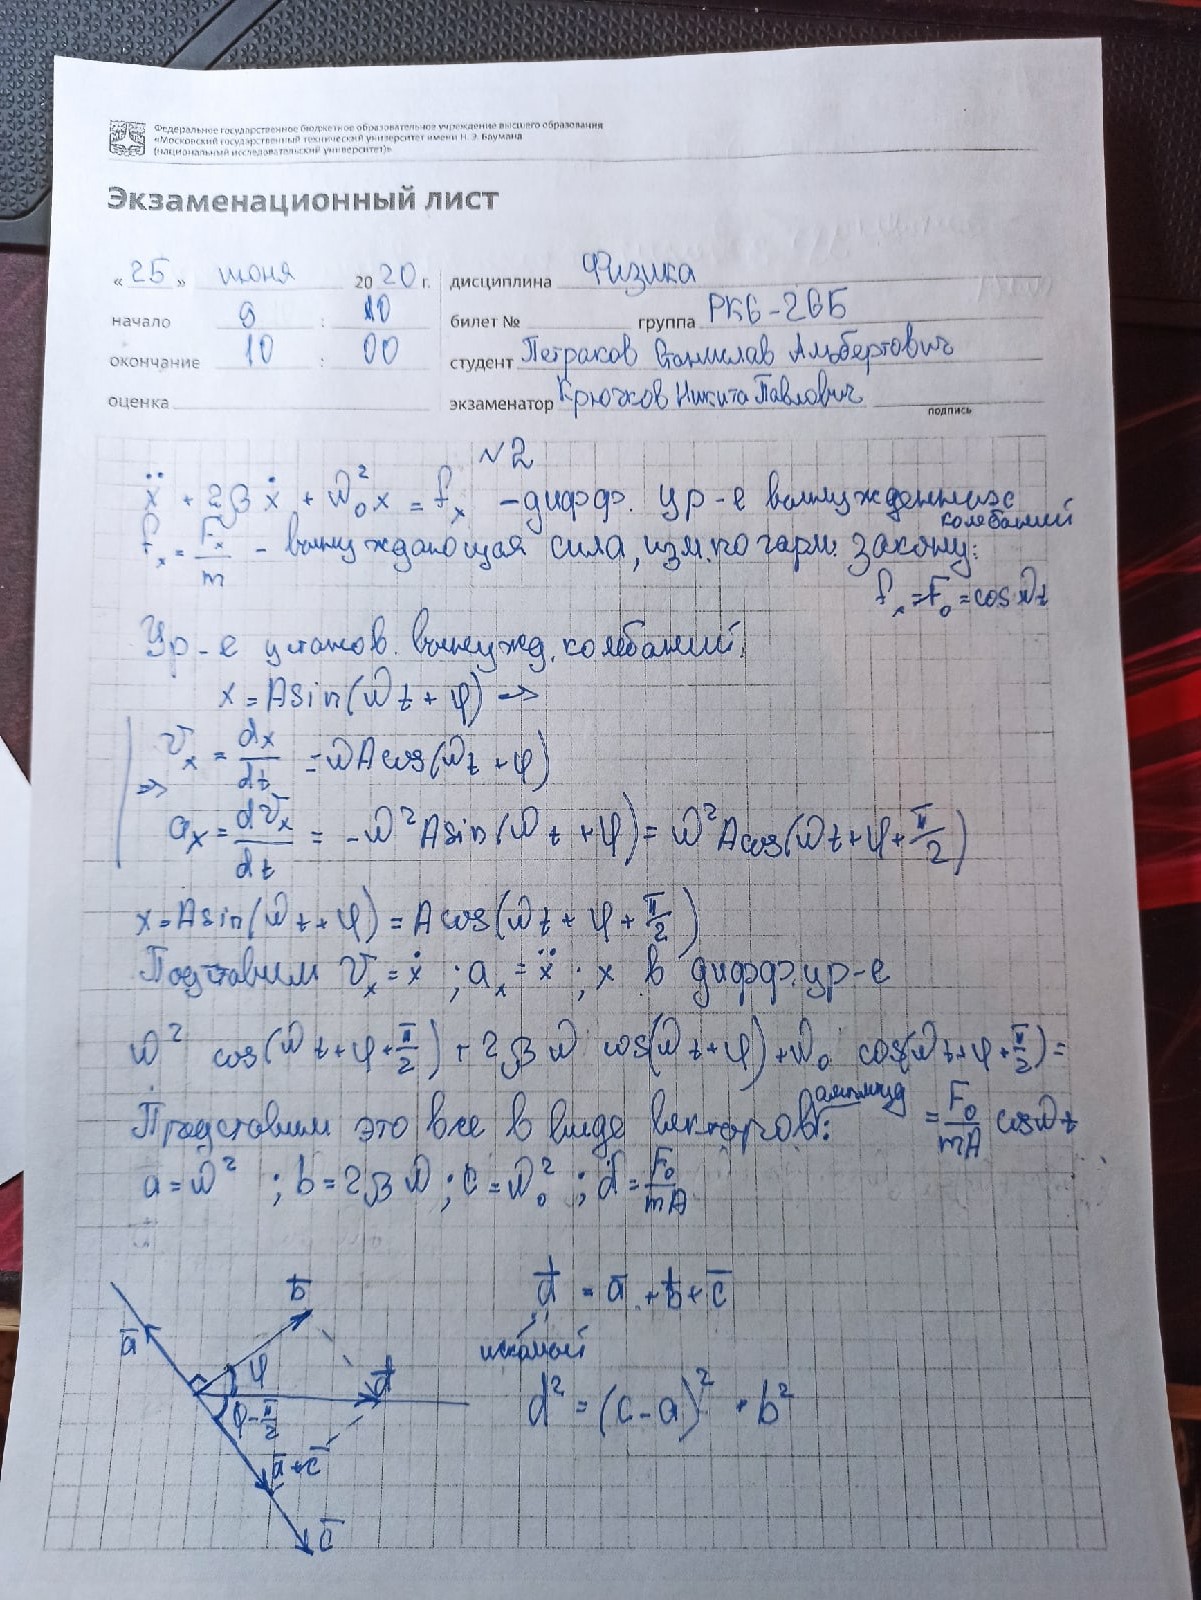 Федеральное государственное бюджетное образовательное учреждение высшего образования
«Московский государственный технический университет имени Н.Э. Баумана
(национальный исследовательский университет)»
Экзаменационный лист
«25» июня 2020 г. дисциплина Физика
начало 9 : 10 билет № группа РК6-26Б
окончание 10 : 00 студент Петраков Станислав Альбертович
оценка экзаменатор Крючков Никита Павлович
подпись
№2
ẍ + 2βẋ + ω₀²x = fₓ - дифф. ур-е вынужденных колебаний
fₓ = Fₓ/m - вынуждающая сила, изм. по гарм. закону:
fₓ = F₀ = cos ωt
Ур-е установ. вынужд. колебаний:
x = A sin(ωt + φ) ⇒
⇒ vₓ = dx/dt = ωA cos(ωt + φ)
aₓ = dvₓ/dt = -ω²A sin(ωt + φ) = ω²A cos(ωt + φ + π/2)
x = A sin(ωt + φ) = A cos(ωt + φ + π/2)
Подставим vₓ = ẋ ; aₓ = ẍ ; x в дифф. ур-е
ω² cos(ωt + φ + π/2) + 2βω cos(ωt + φ) + ω₀ cos(ωt + φ + π/2) =
= F₀/mA cos ωt
Представим это все в виде векторов амплитуд:
a = ω² ; b = 2βω ; c = ω₀² ; d = F₀/mA
b̄
ā
φ
d̄
φ - π/2
ā + c̄
c̄
d̄ = ā + b̄ + c̄
искомый
d² = (c - a)² + b²